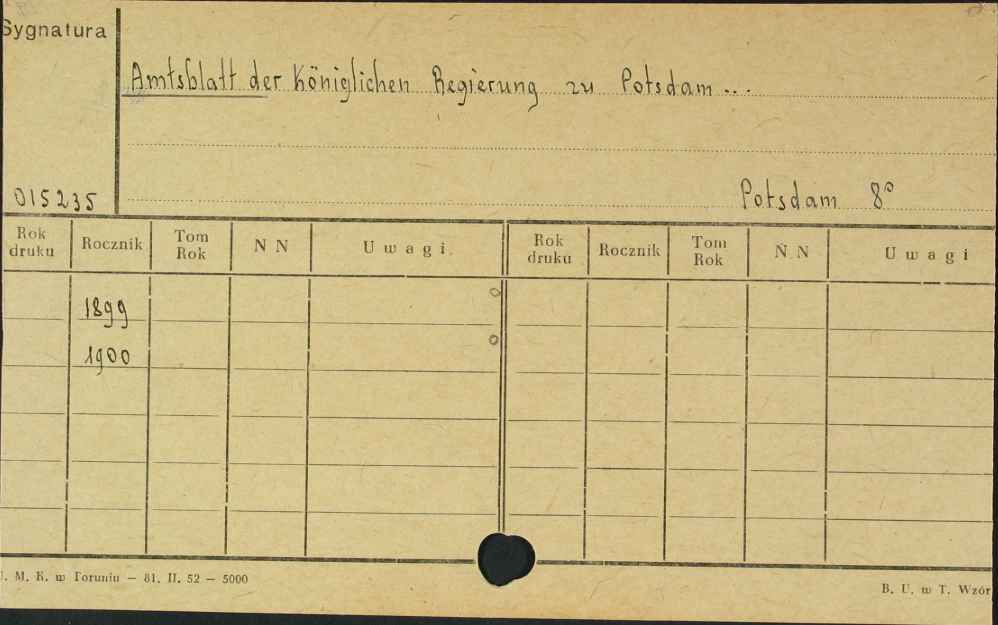 Sygnatura
Amtsblatt der Königlichen Regierung zu Potsdam...
015235
Potsdam 8°
Rok druku Rocznik Tom Rok N N Uwagi Rok druku Rocznik Tom Rok N N Uwagi
1899
1900
. M. K. w Toruniu — 81. II. 52 — 5000
B. U. w T. Wzór